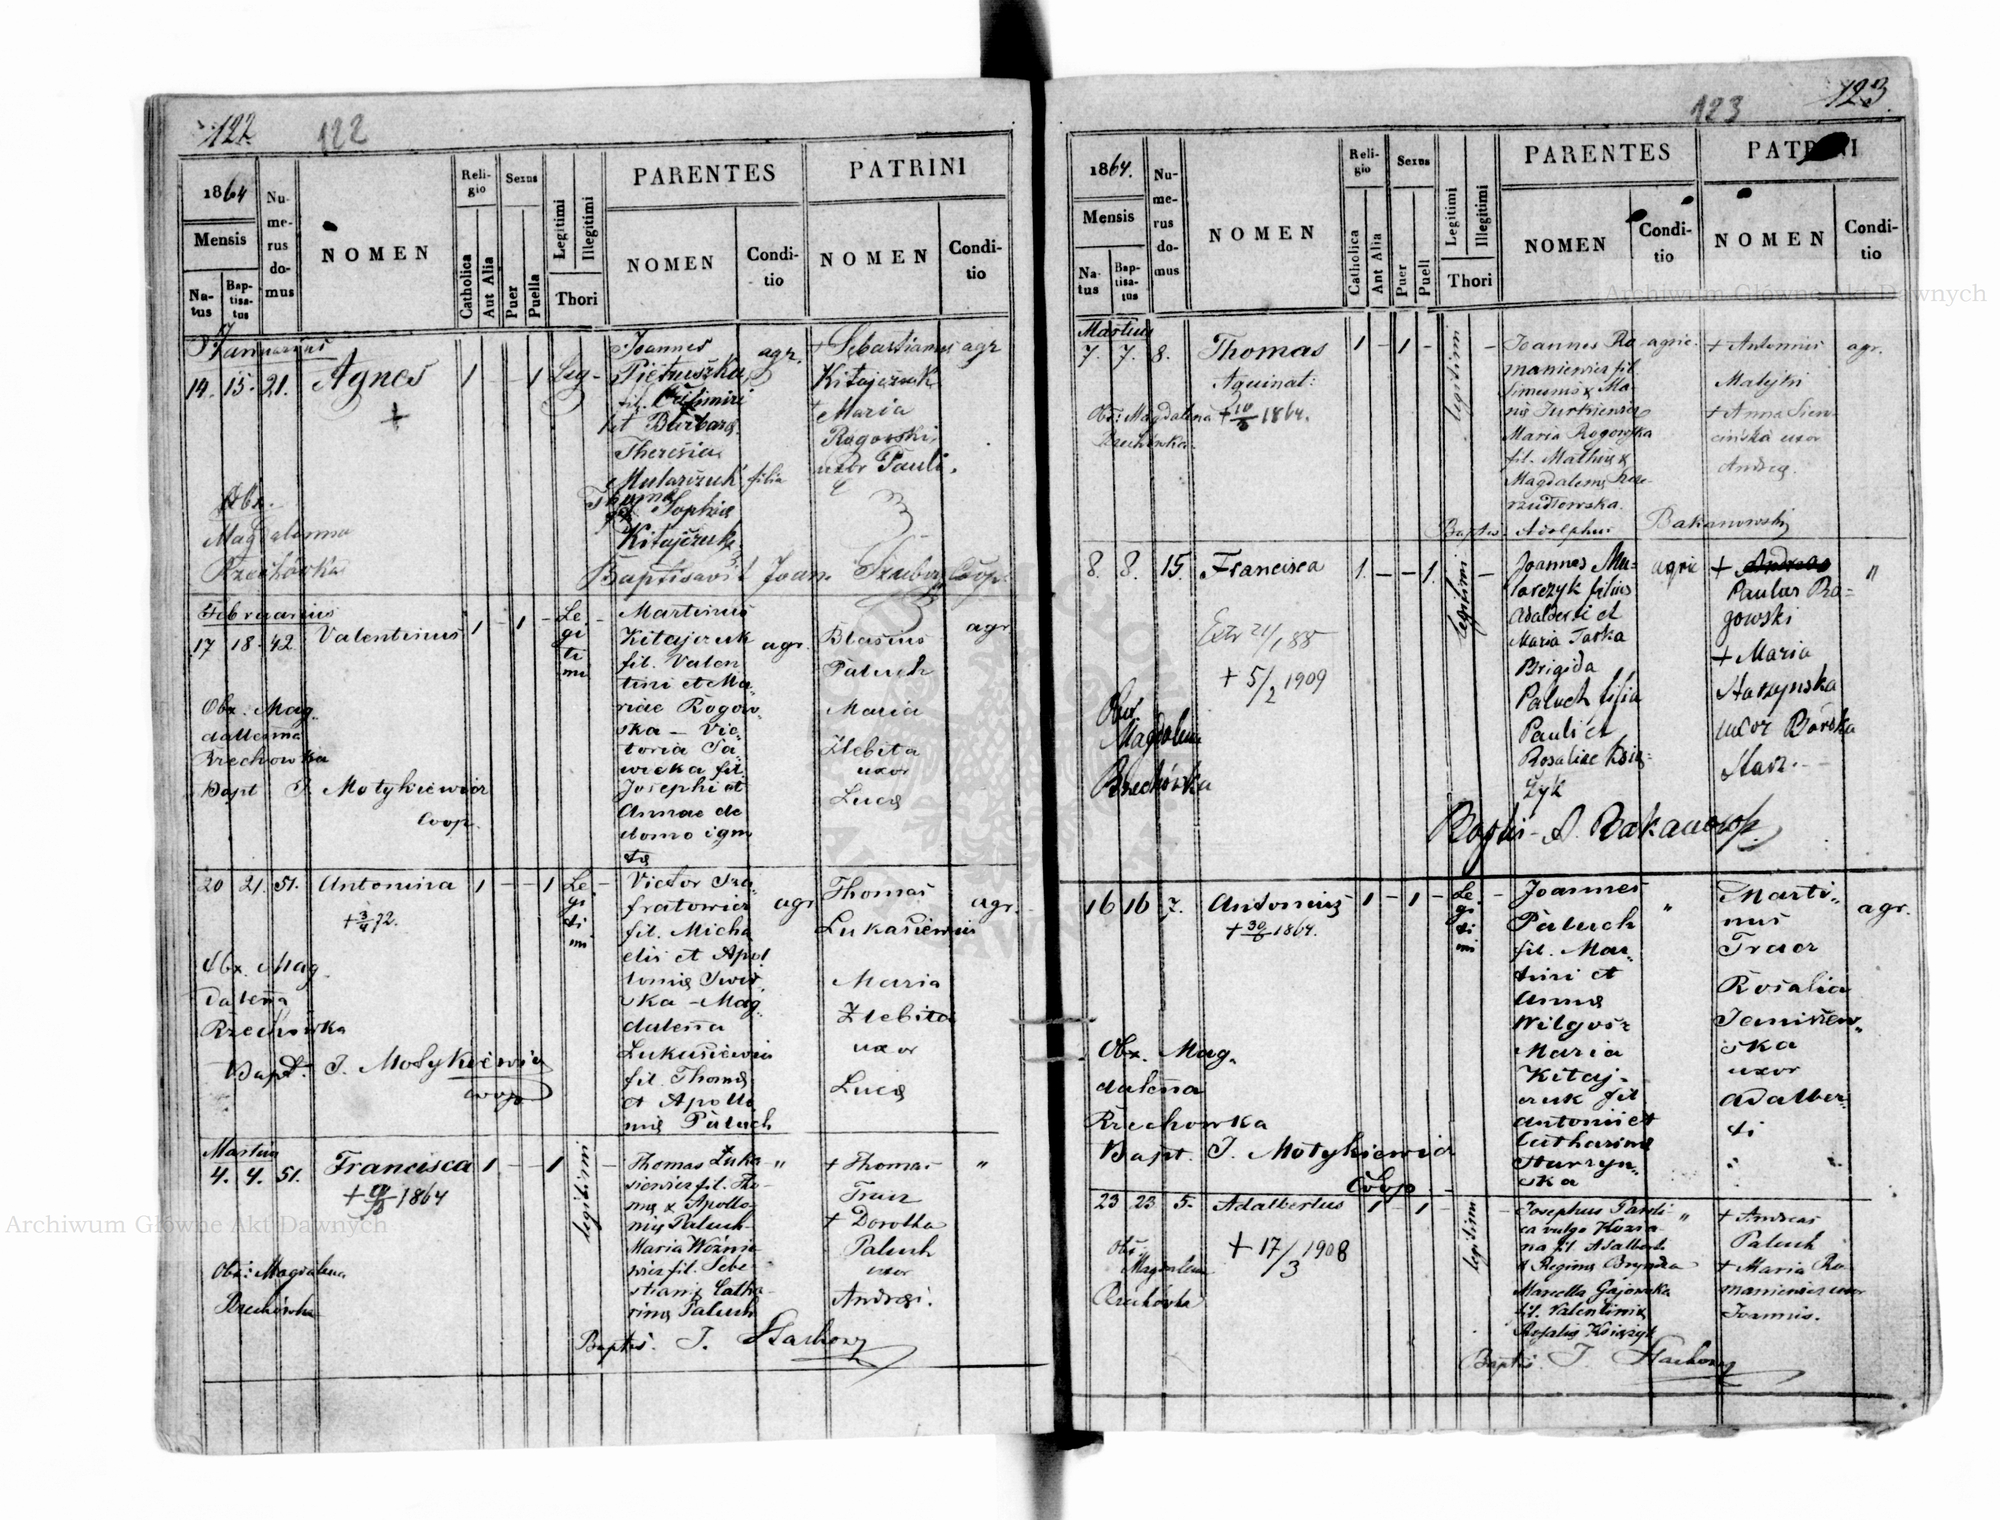 122
122
1864
Mensis
Na-
tus
Bap-
tisa-
tus
Nu-
me-
rus
do-
mus
NOMEN
Reli-
gio
Catholica
Aut Alia
Sexus
Puer
Puella
Legitimi
Illegitimi
Thori
PARENTES
NOMEN
Condi-
tio
PATRINI
NOMEN
Condi-
tio
Januarius
14. 15. 21. Agnes 1 - - 1 Leg-
+
Obx.
Magdalenna
Rzechówka
Joannes
Pietruszka
fil. Casimiri
et Barbara
Theresia
Mularczuk filia
Thoma
et Sophia
Kitajczuk
agr.
+ Sebastianus agr
Kitajczuk
+ Maria
Rogowski
uxor Pauli.
Baptisavit Joan. Coop.
Februarius
17 18 42 Valentinus 1 - 1 -
Le
gi
ti
mi
Obx. Mag.
dallenna
Rzechowka
Bapt J. Motykiewicz
Coop.
Martinus
Kitajczuk
fil. Valen
tini et Ma-
riae Rogow-
ska - Vic-
toria Sa-
wicka fil.
Josephi et
Annae de
domo igno
tę
agr.
Blasius
Paluch
Maria
Zlebita
uxor
Lucę
agr
20 21. 51. Antonina 1 - - 1
+ 3/4 72.
Le
gi
ti
mi
Obx. Mag
dalena
Rzechówka
Bapt. J. Motykiewicz
coop
Victor
fratowicz
fil. Micha
elis et Apol
ska - Mag
dalena
Lukasiewicz
fil. Thomę
et Apollo
nię Paluch
agr
Thomas
Lukasiewicz
Maria
Zlebita
uxor
Lucę
agr.
Martius
4. 4. 51. Francisca 1 - - 1
1864
legitimi
Obx: Magdalena
Rzechówka
Thomas Łuka "
siewicz fil. Tho-
mę & Apollo-
nię Paluch
Maria Woźnie
wicz fil. Seba
stiani & Catha-
rinę Paluch
+ Thomas "
Tracz
+ Dorotha
Paluch
uxor
Andreę.
Baptis. J. Stachowz
123
123
1864.
Mensis
Na-
tus
Bap-
tisa-
tus
Nu-
me-
rus
do-
mus
NOMEN
Reli-
gio
Catholica
Ant Alia
Sexus
Puer
Puell
Legitimi
Illegitimi
Thori
PARENTES
NOMEN
Condi-
tio
PATRINI
NOMEN
Condi-
tio
Martius
7. 7. 8. Thomas 1 - 1 -
Aquinat:
1864.
Obx: Magdalena
Rzechówka
legitimi
Joannes Ro
maniewicz fil.
Simeonis & Ma-
rię Jurkiewicz
Maria Rogowska
fil. Mathię &
Magdalenę
agric.
+ Antonius
Matyjki
+ Anna Sien-
cińska uxor
Andreę.
agr.
Baptis. Adolphus Bakanowski
8. 8. 15. Francisca 1. - - 1.
legitimi
Extr 21/1 88
+ 5/2 1909
Obx
Magdalena
Rzechówka
Joannes Mu-
larczyk filius
Adalberti et
Maria Tarka
Brigida
Paluch filia
Pauli et
Rosaliae Książ-
żyk
agric
+ Andreas
Paulus Ro-
gowski
+ Maria
Starzynska
uxor
Starz. -
"
Baptis - A. Bakanowsk
16 16 7. Antonius 1 - 1 -
+ 30/6 1864.
Le
gi
ti
mi
Obx. Mag.
dalena
Rzechowka
Bapt. J. Motykiewicz
Coop
Joannes
Paluch
fil. Mar-
tini et
Annę
Wilgosz
Maria
Kitaj-
czuk fil
Antonii et
Catharinę
Starzyn-
ska
"
Marti-
nus
Tracz
Rosalia
Janiszew-
ska
uxor
Adalber-
ti
agr.
23 23 5. Adalbertus 1 - 1 -
+ 17/3 1908
legitimi
Obx:
Magdalena
Rzechówka
Josephus Pardi-
ca vulgo Kozia-
na fil. Adalberti
& Reginę Bryndza
Marcella Gajowska
fil. Valentini &
Rosalię Książyk
"
+ Andreas
Paluch
+ Maria Ro
maniewicz uxor
Joannis.
Baptis J Stachowz
Archiwum Główne Akt Dawnych
Archiwum Główne Akt Dawnych